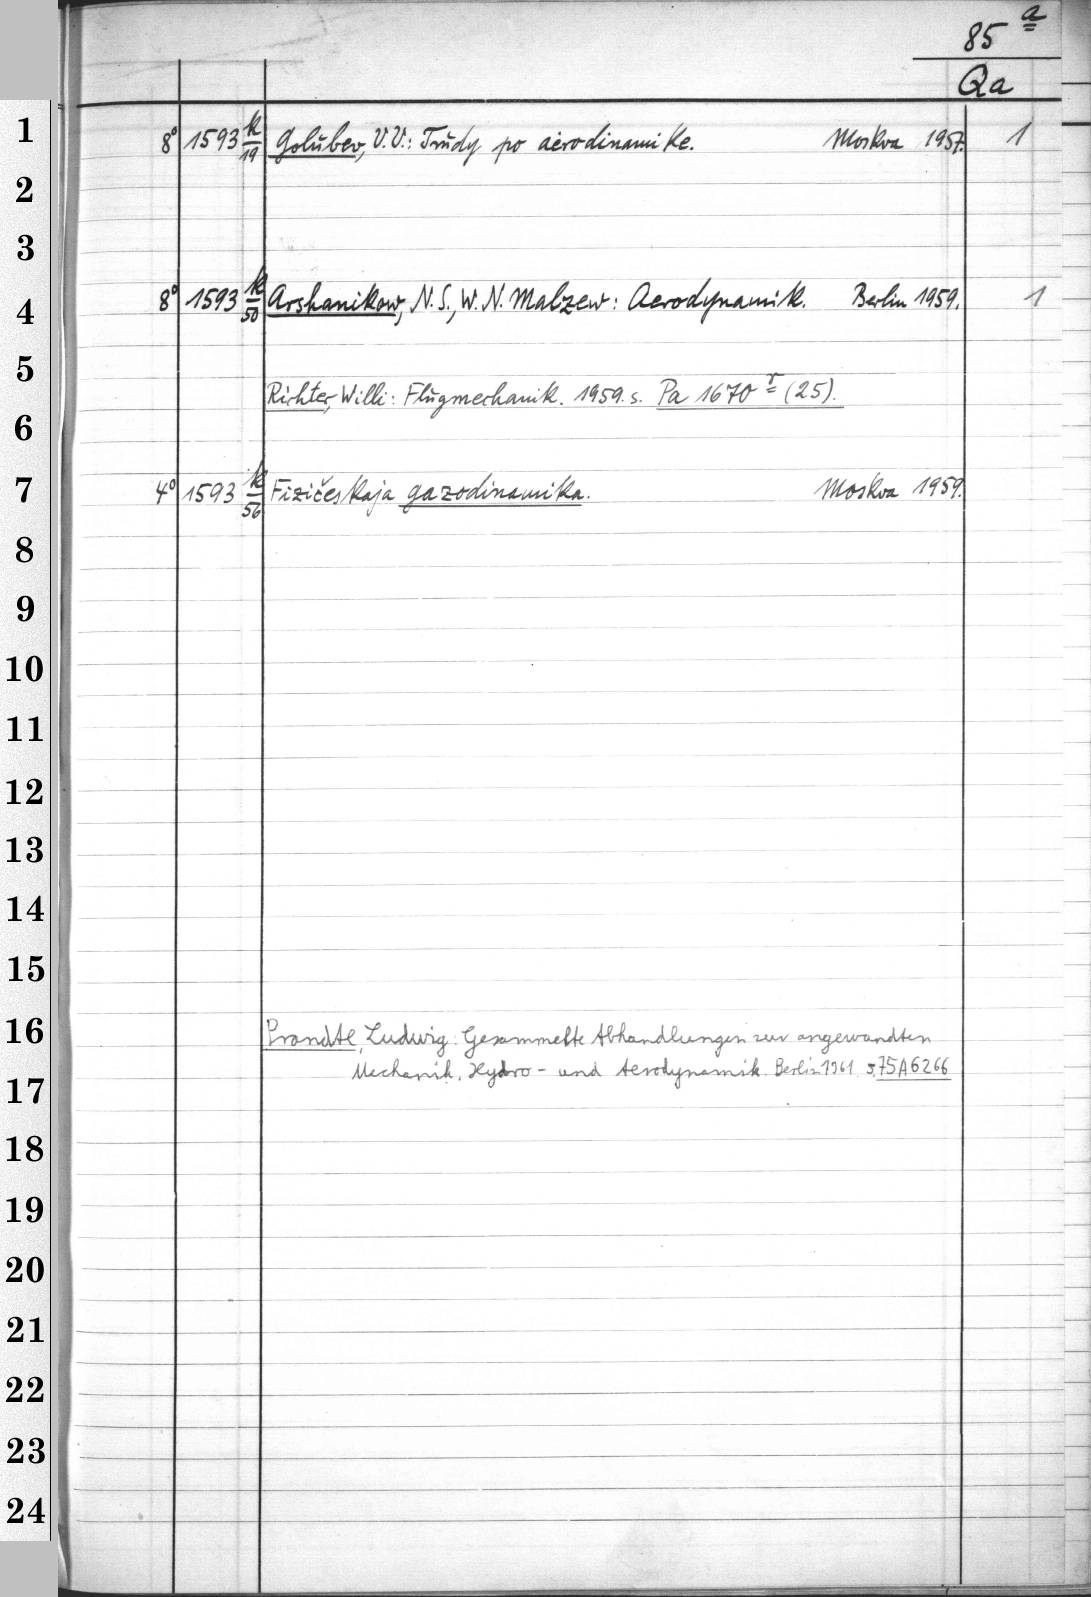 85 a
Qa
1
8° 1593 k/19 Golubev, V.V.: Trudy po aerodinamike. Moskva 1957. 1
2
3
4
8° 1593 k/50 Arshanikow, N.S., W.N. Malzew: Aerodynamik. Berlin 1959. 1
5
Richter, Willi: Flugmechanik. 1959. s. Pa 1670 r (25).
6
7
4° 1593 k/56 Fizičeskaja gazodinamika. Moskva 1959.
8
9
10
11
12
13
14
15
16
Prandtl, Ludwig: Gesammelte Abhandlungen zur angewandten
Mechanik, Hydro- und Aerodynamik. Berlin 1961 s. 75A6266
17
18
19
20
21
22
23
24